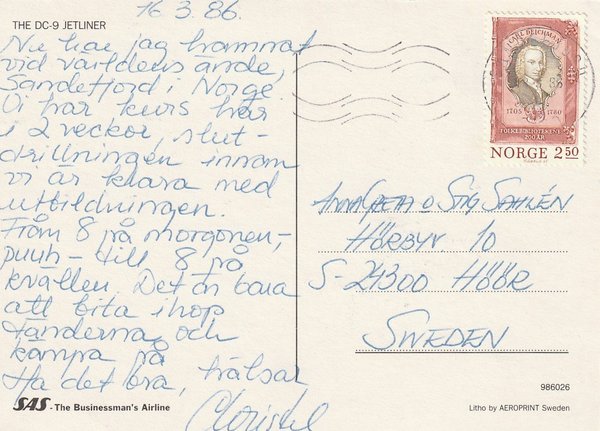 16.3.86.
THE DC-9 JETLINER
Nu har jag hamnat
vid världens ände,
Sandefjord i Norge.
Vi har kurs här
i 2 veckor, slut-
drillningen innan
vi är klara med
utbildningen.
Från 8 på morgonen,-
puuh - till 8 på
kvällen. Det är bara
att bita ihop
tänderna och
kämpa på
Ha det bra, hälsar
Christel
SAS - The Businessman's Airline
CARL DEICHMAN
1705 1780
FOLKEBIBLIOTEKENE
200 ÅR
NORGE 2.50
Anna Greta o Stig Sahlén
Hörbyv. 10
S-24300 Höör
Sweden
986026
Litho by AEROPRINT Sweden